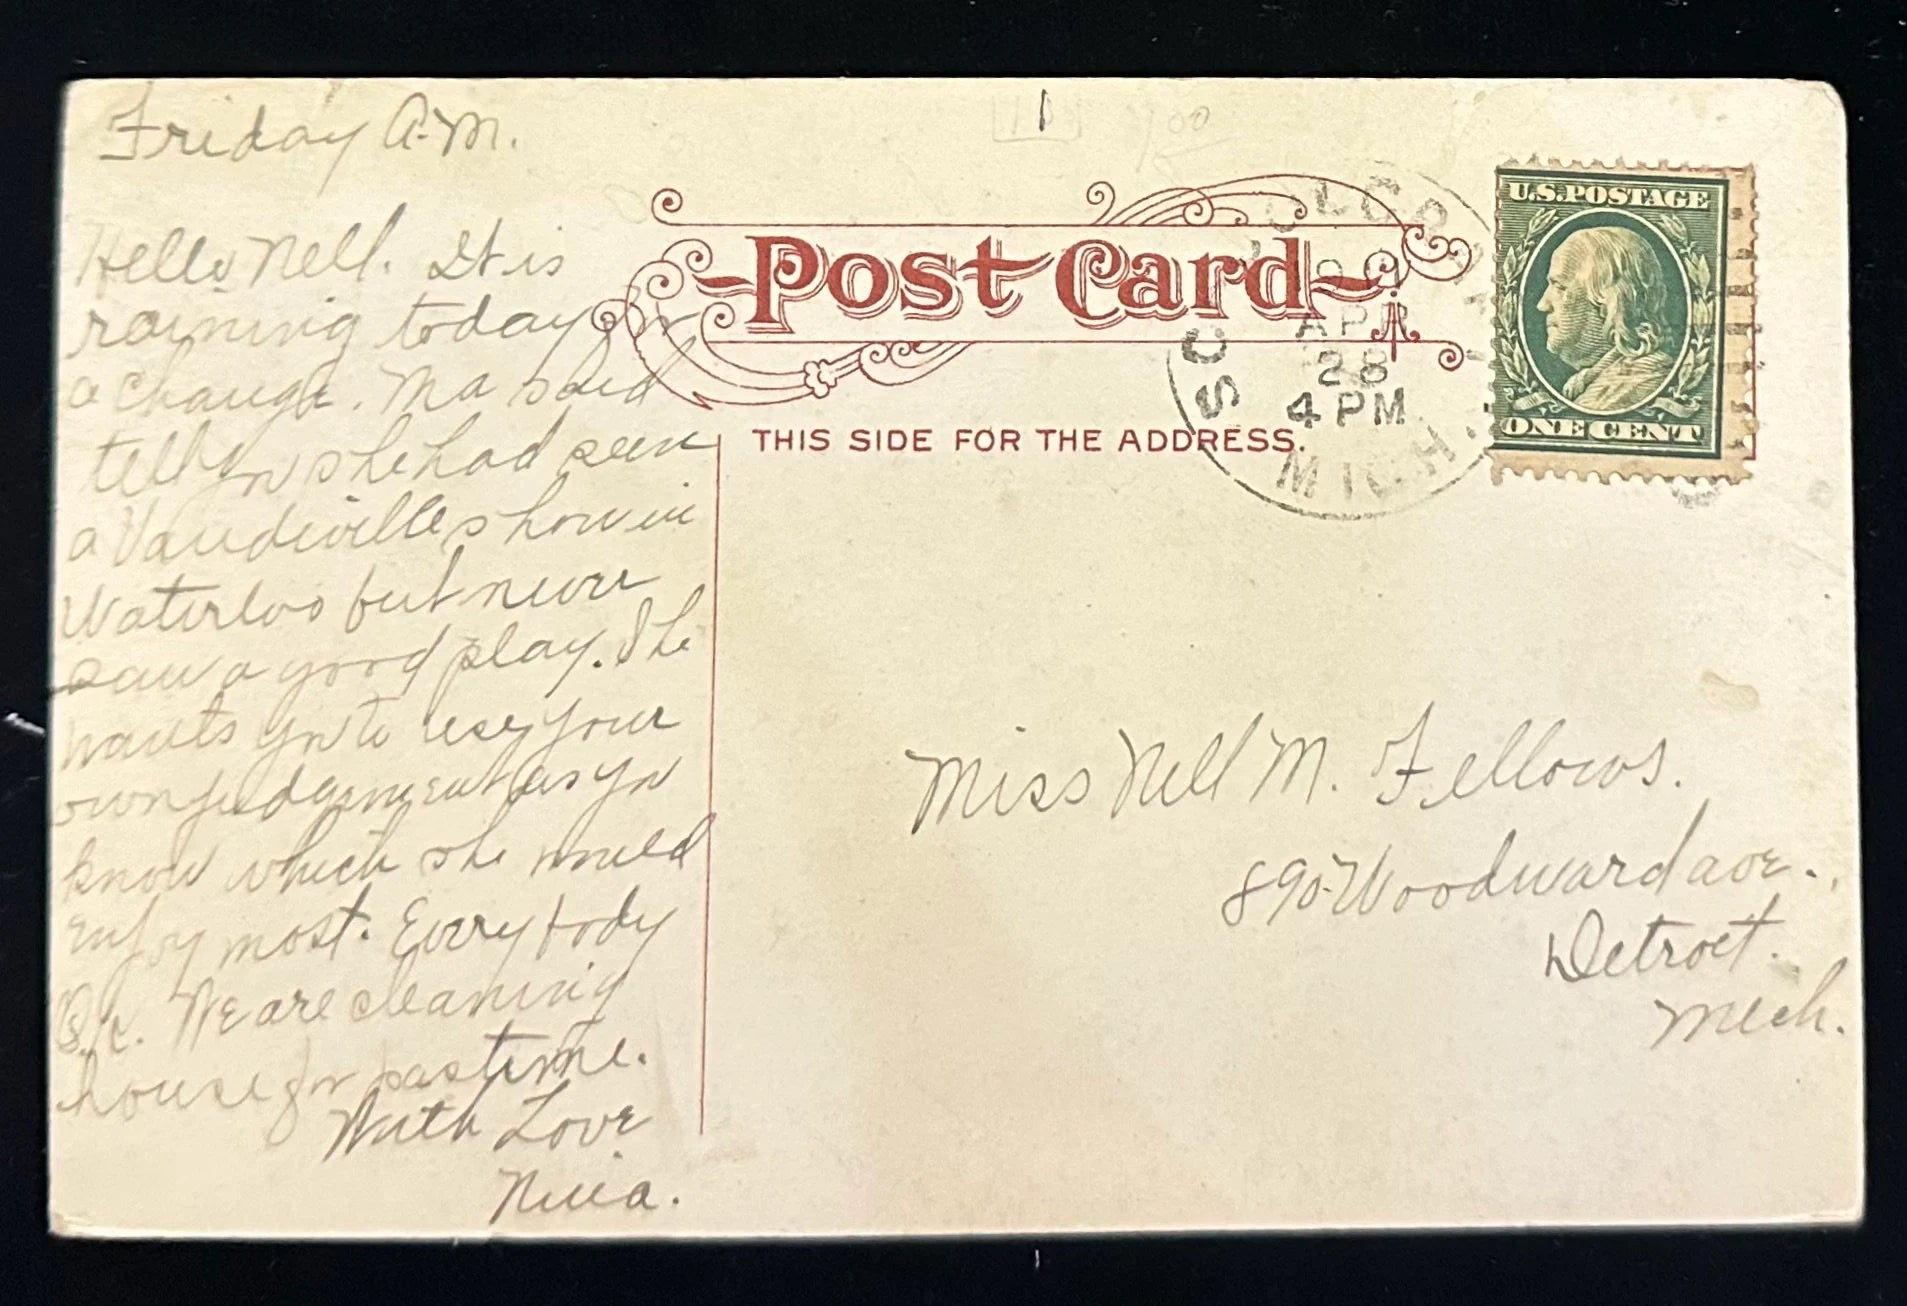 Friday A.M.
Hello Nell. It is
raining today for
a change. Ma said
tell you she had seen
a Vaudeville show in
Waterloo but never
saw a good play. She
wants you to use your
own judgement as you
know which she would
enjoy most. Everybody
O.K. We are cleaning
house for pastime.
With Love
Nina.
Post Card
THIS SIDE FOR THE ADDRESS.
APR
28
4 PM
MICH.
U.S. POSTAGE
ONE CENT
Miss Nell M. Fellows.
890 Woodward ave.
Detroit.
Mich.